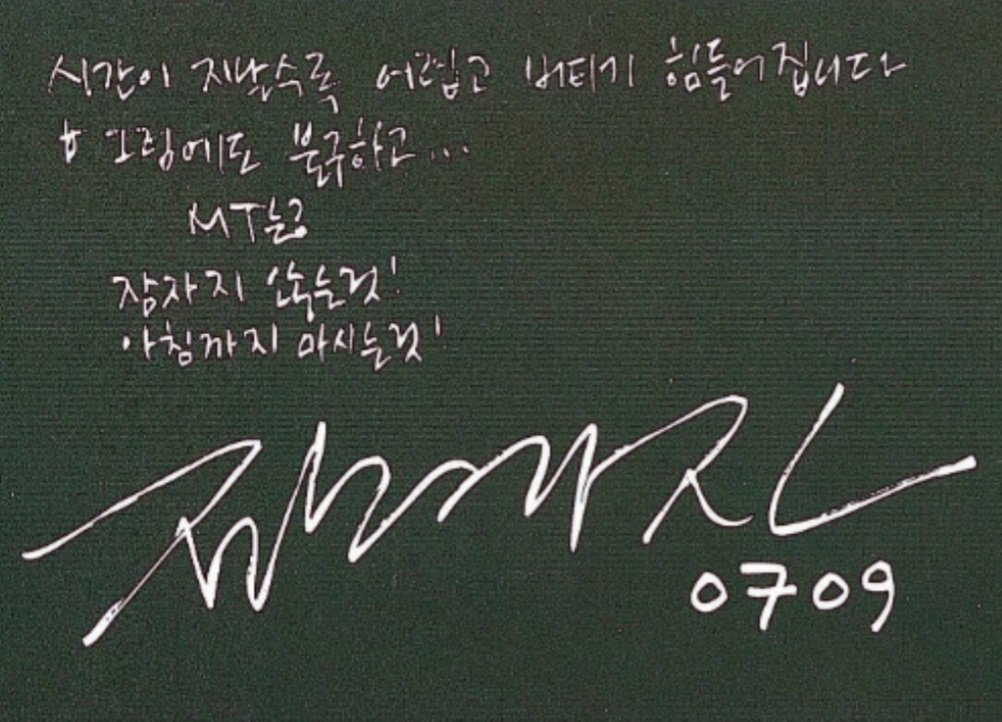 시간이 지날수록 어렵고 버티기 힘들어집니다
그럼에도 불구하고...
MT는
잠자지 않는것!
아침까지 마시는것!
0709